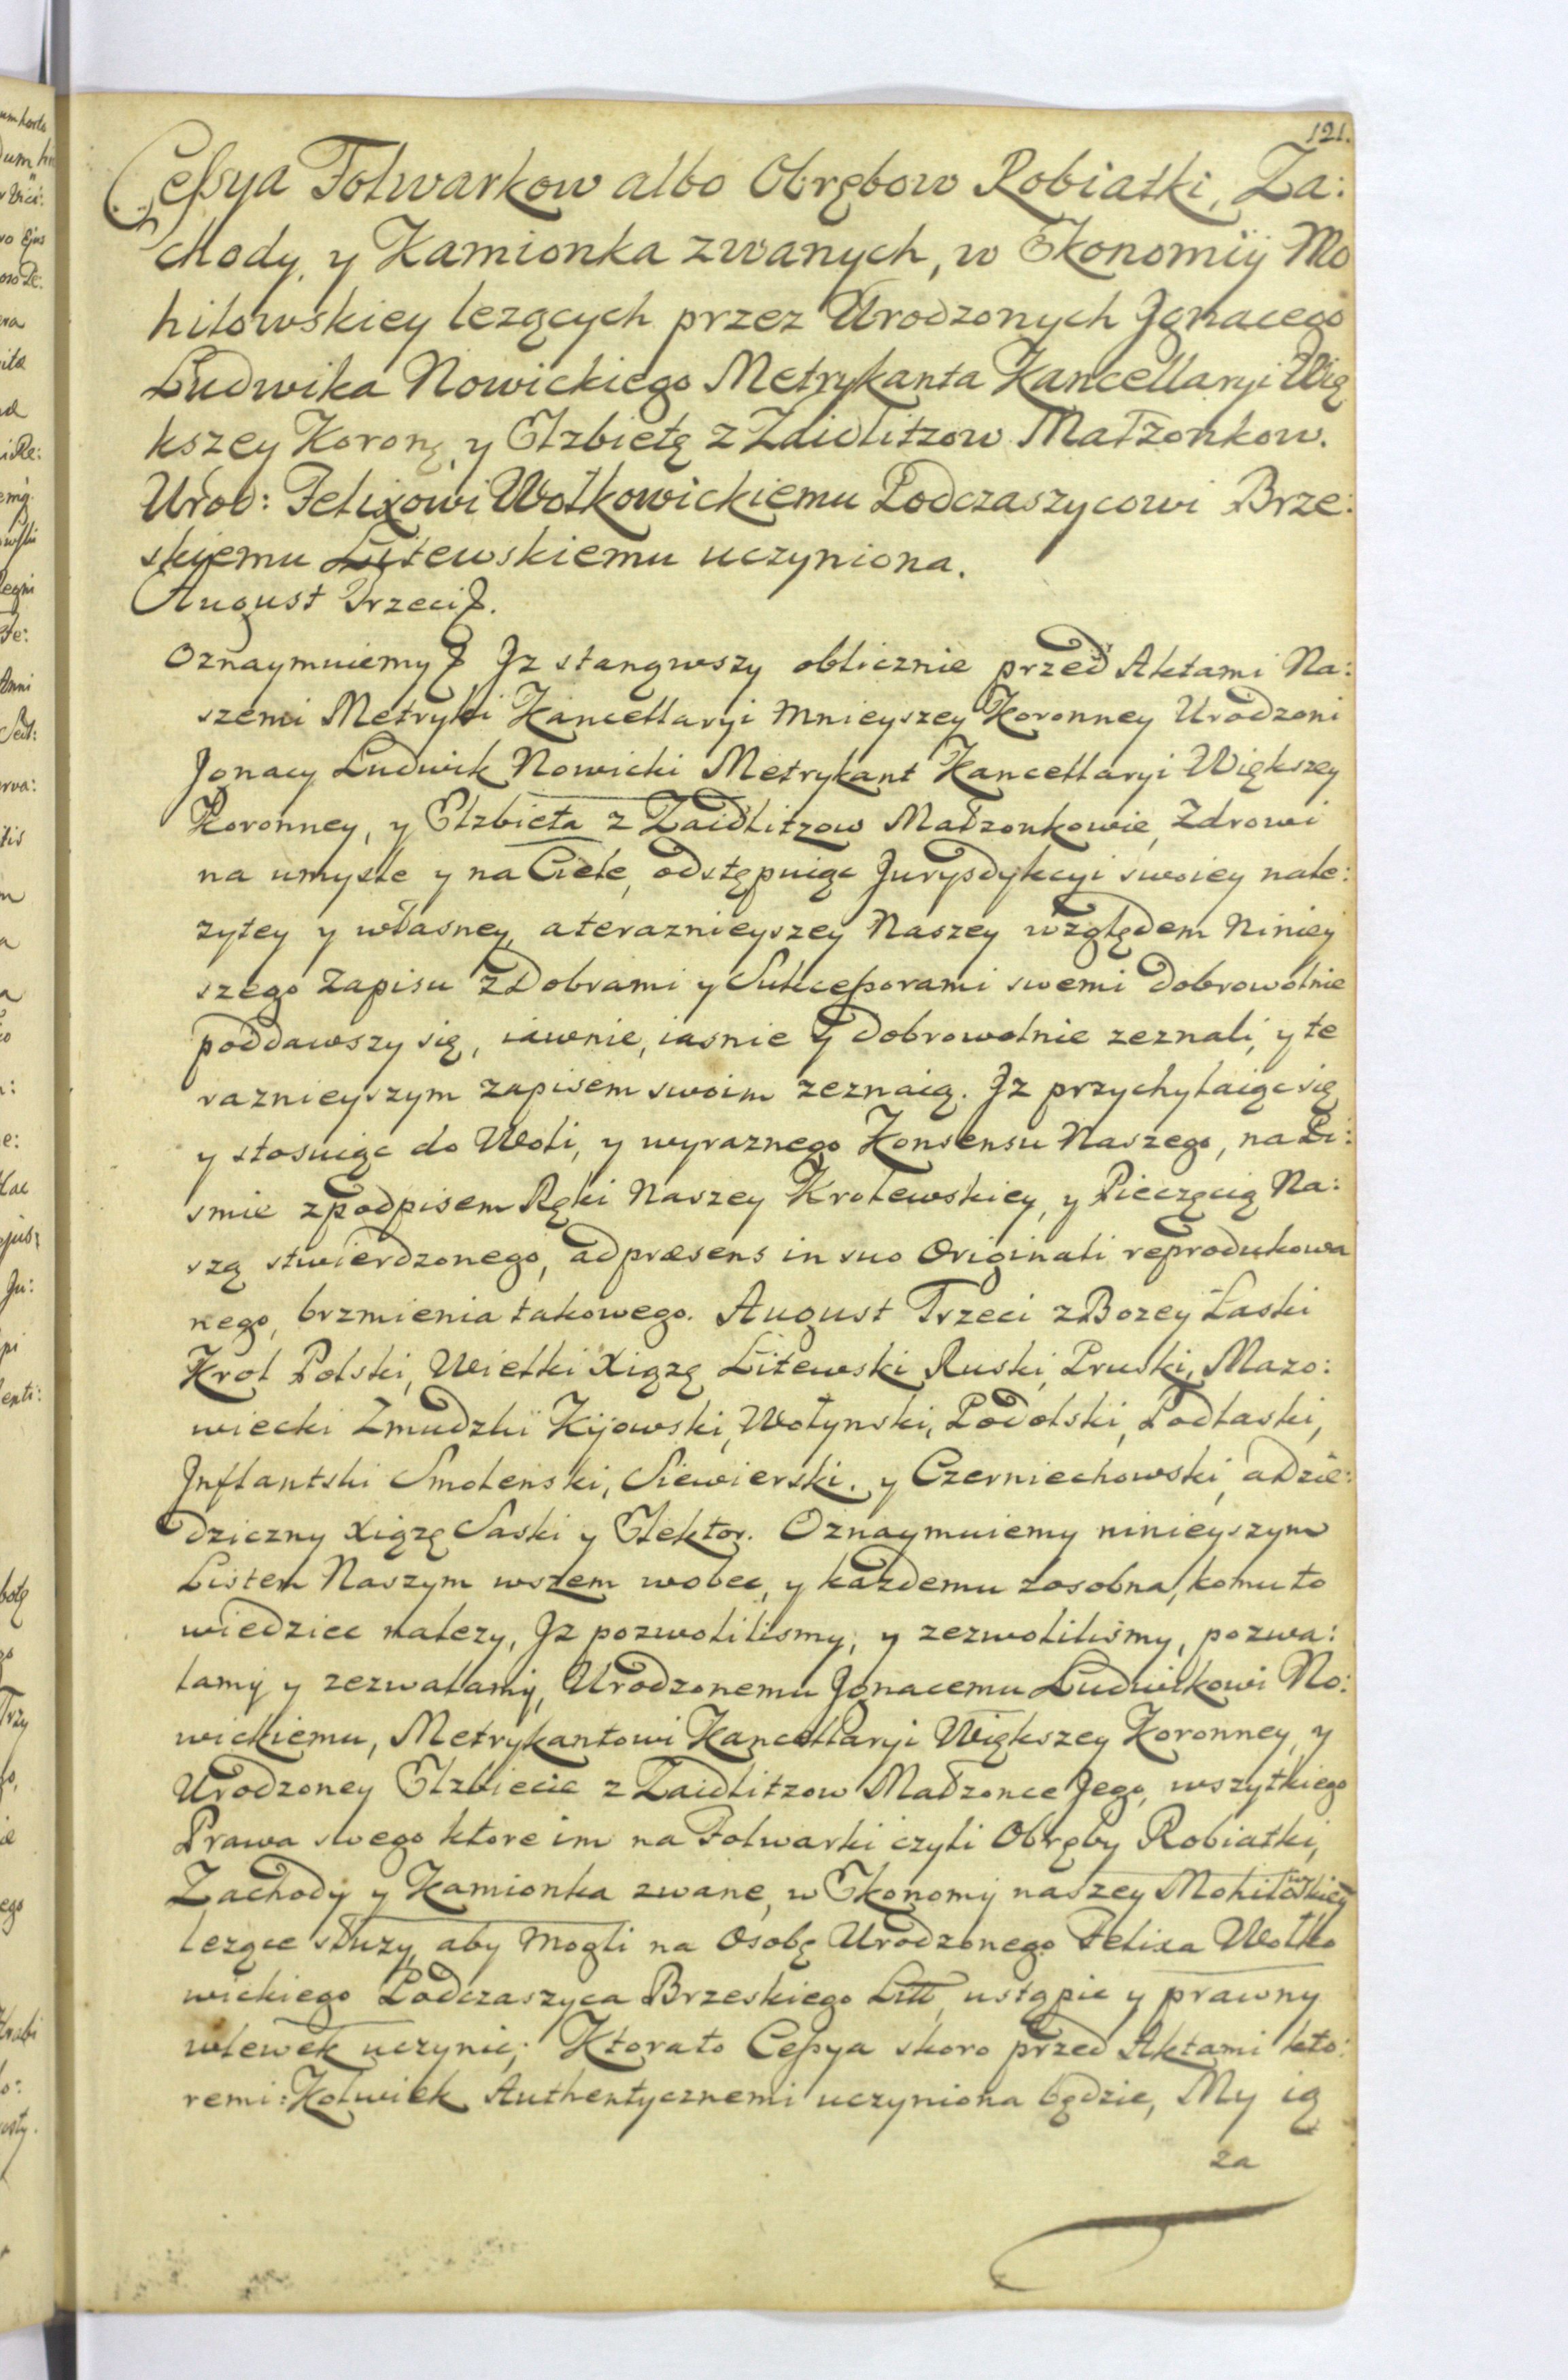 121.
Ceßya Folwarkow albo Obrębow Robiatki, Za:
chody, y Kamionka zwanych, w Ekonomiij Mo
hilowskiey lezących przez Urodzonych Jgnacego
Ludwika Nowickiego Metrykanta Kancellaryi Wię
kszey Koroną, y Elzbietę z Zaidlitzow Małzonkow.
Urod: Felixowi Wołkowickiemu Podczaszycowi Brze:
skiemu Litewskiemu uczyniona.
August Trzeci
Oznaymuiemy Jz stanąwszy oblicznie przed Aktami Na:
szemi Metryki Kancellaryi Mnieyszey Koronney Urodzoni
Jgnacy Ludwik Nowicki Metrykant Kancellaryi Większey
Koronney, y Elzbieta z Zaidlitzow Małzonkowie, Zdrowi
na umysle y na Ciele, odstępuiąc Jurysdykcyi swoiey nale:
zytey y własney, a teraznieyszey Naszey względem Niniey
szego Zapisu z Dobrami y Sukceßorami swemi Dobrowolnie
poddawszy się, iawnie, iasnie y Dobrowolnie zeznali, y te
raznieyszym zapisem swoim zeznaią. Jz przychylaiąc się
y stosuiąc do Woli, y wyraznego Konsensu Naszego, na Pi:
smie z podpisem Ręki Naszey Krolewskiey, y Pieczęcią Na:
szą stwierdzonego, ad præsens in suo Originali reprodukowa
nego, brzmienia takowego. August Trzeci z Bozey Łaski
Krol Polski, Wielki Xiązę Litewski Ruski, Pruski, Mazo:
wiecki Zmudzki Kijowski, Wołynski, Podolski, Podlaski,
Jnflantski Smolenski, Siewierski, y Czerniechowski, a Dzie:
dziczny Xiązę Saski y Elektor. Oznaymuiemy ninieyszym
Listem Naszym wszem wobec, y kazdemu zosobna, komu to
wiedziec nalezy, Jz pozwolilismy, y zezwolilismy, pozwa:
lamy y zezwalamy, Urodzonemu Jgnacemu Ludwikowi No:
wickiemu, Metrykantowi Kancellaryi Większey Koronney, y
Urodzoney Elzbiecie z Zaidlitzow Małzonce Jego, wszytkiego
Prawa swego ktore im na Folwarki czyli Obręby Robiatki,
Zachody y Kamionka zwane, w Ekonomij naszey Mohilowskiey
lezące słuzy, aby mogli na Osobę Urodzonego Felixa Wołko
wickiego Podczaszyca Brzeskiego Litt, ustąpic y prawny
wlewek uczynic; Ktorato Ceßya skoro przed Aktami kto:
remi:Kolwiek Authentycznemi uczyniona będzie, My ią
za